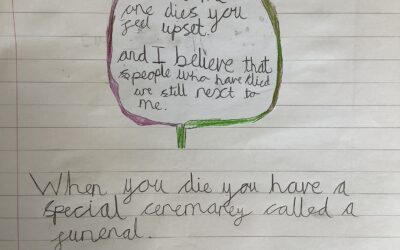 one dies you
feel upset.
and I believe that
speople who have died
are still next to
me.
When you die you have a
special ceremaney called a
funeral.